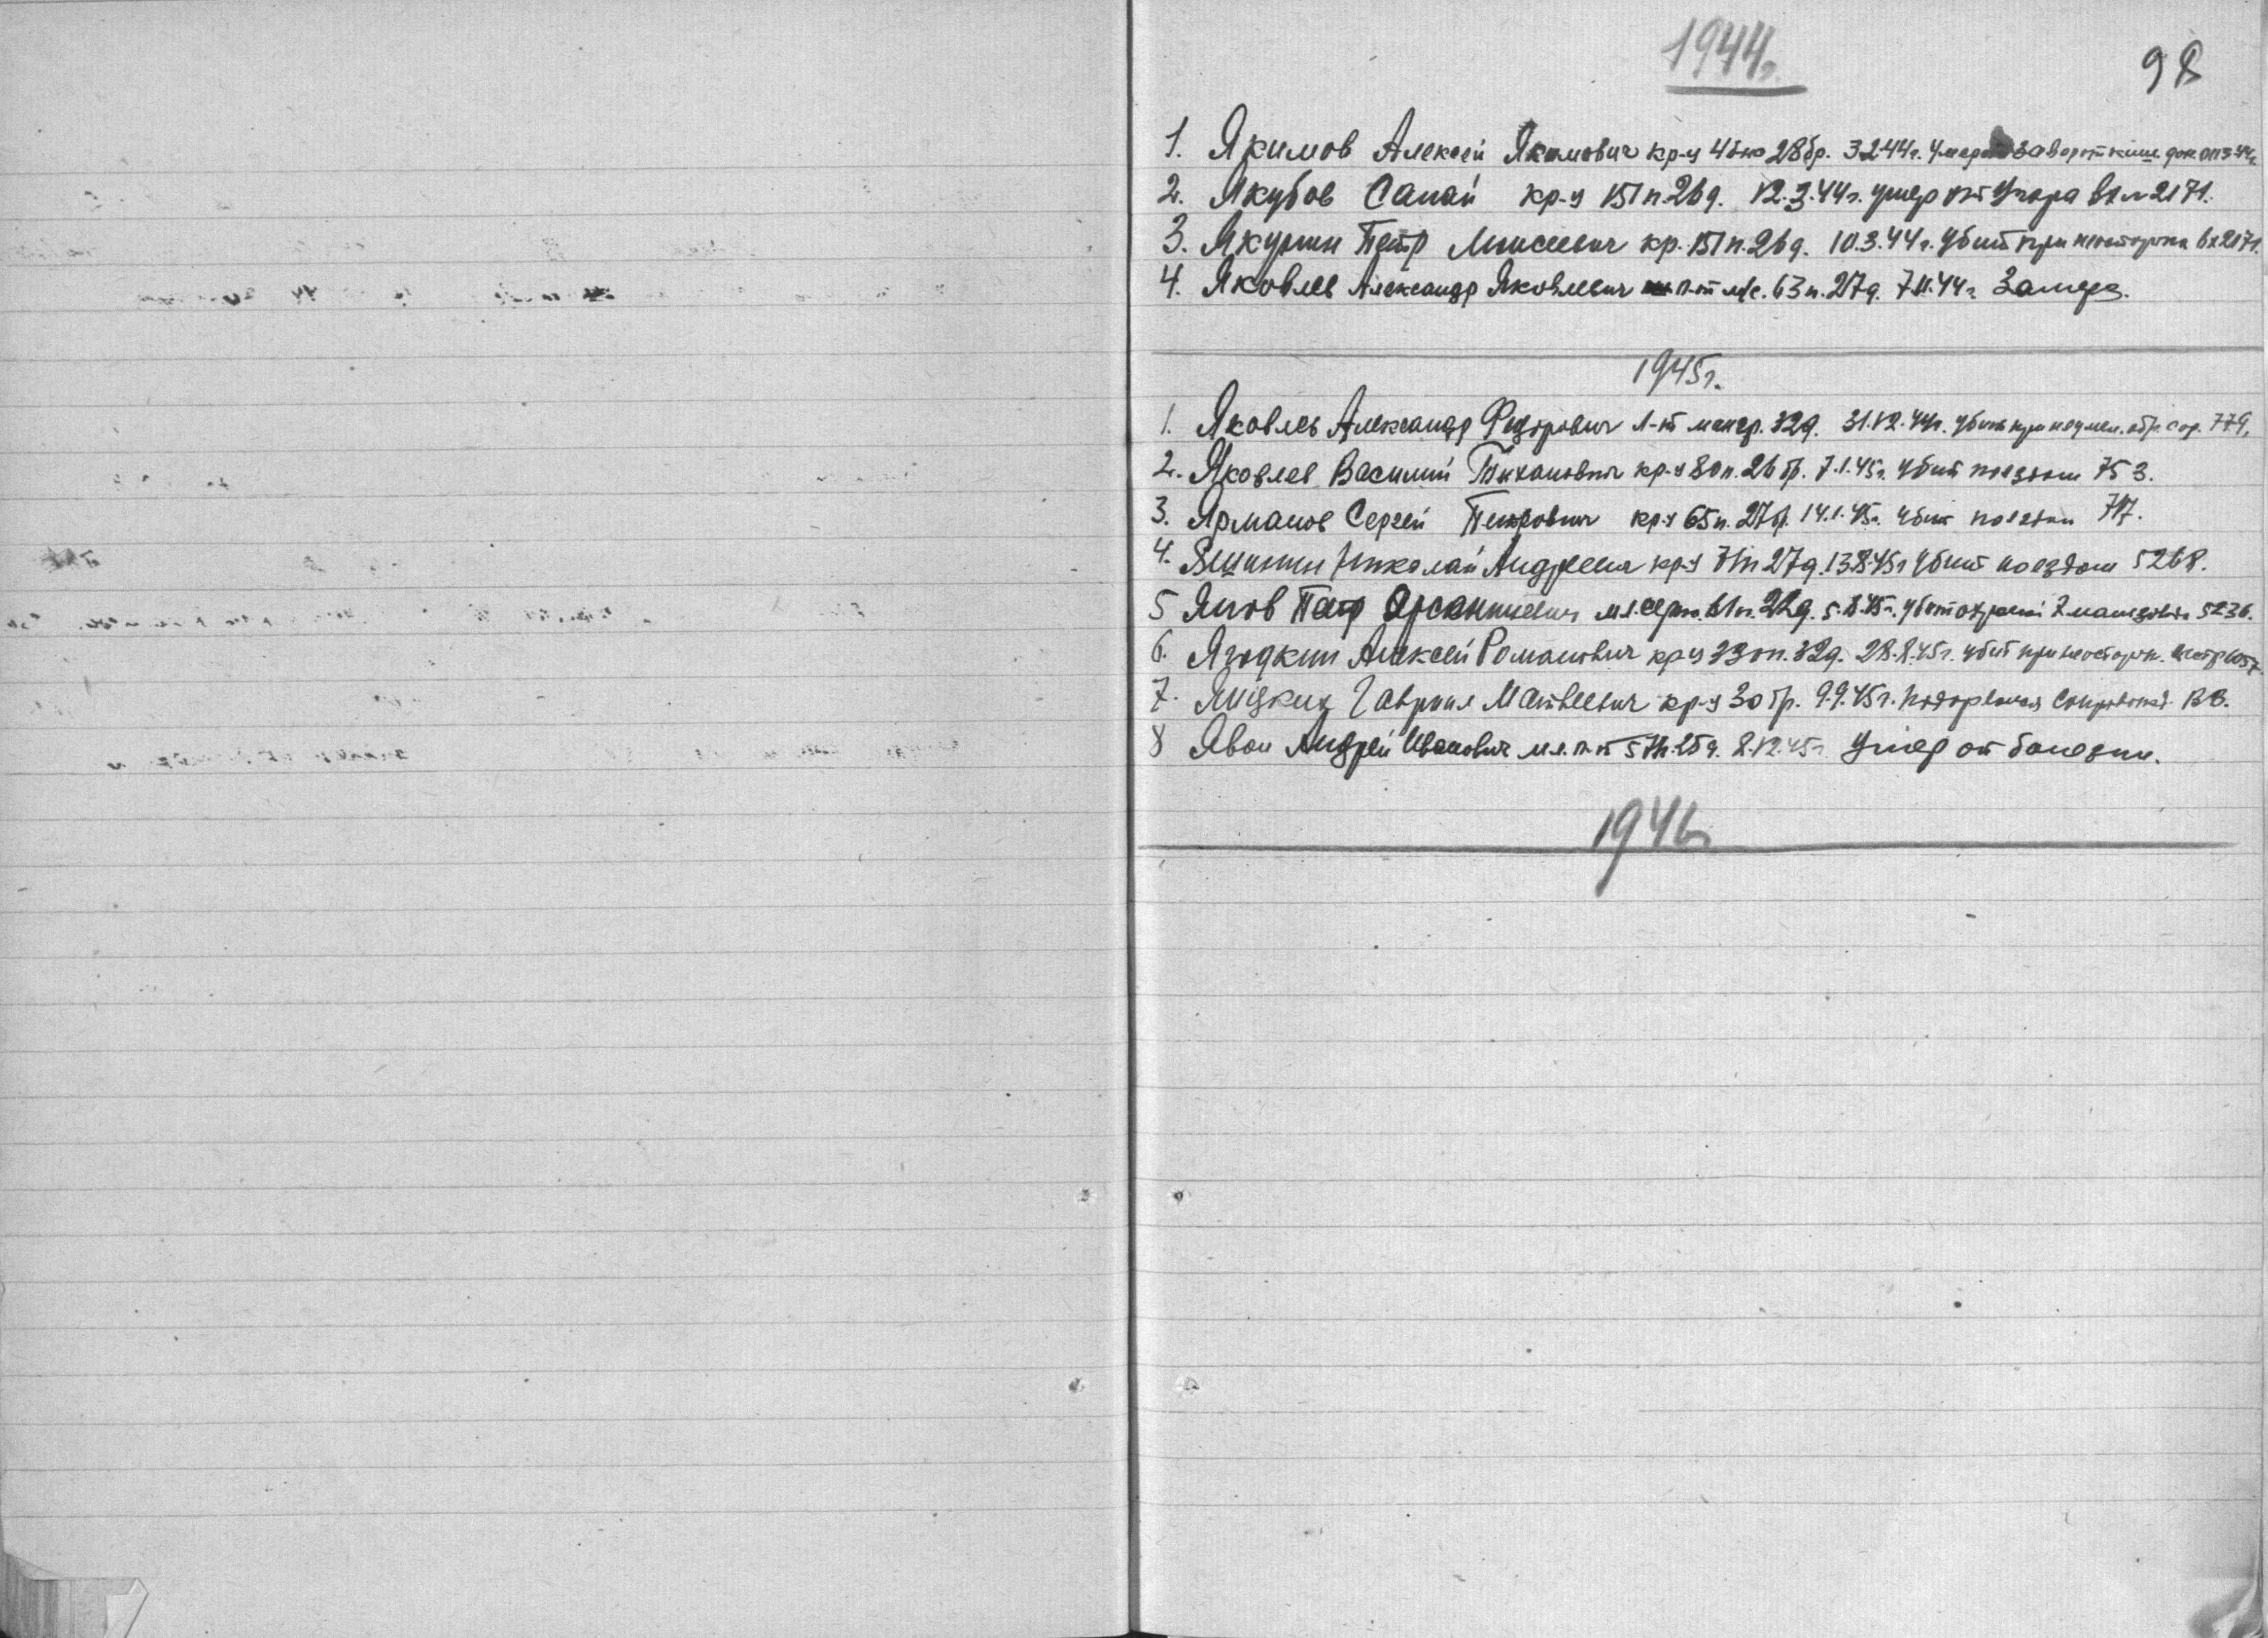 1944г.
98
1. Якимов Алексей Якимович кр-ц 4 28бр. 3.2.44г. Умер заворот киш.
2. Якубов Сапай кр-ц 151п.26д. 12.3.44г. умер от Угара вх 2171.
3. Якушин Петр Моисеевич кр. 151п.26д. 10.3.44г. Убит при неосторож вх 2171.
4. Яковлев Александр Яковлевич л-т м/с. 63п.27д. 7.11.44г. Замерз.
1945г.
1. Яковлев Александр Федорович л-т 32д. 31.12.44г. Убит при неумел. 779.
2. Яковлев Василий Тихонович кр-ц 80п.26бр. 7.1.45г. Убит поездом 753.
3. Ярманов Сергей Петрович кр-ц 65п.27д. 14.1.45г. Убит поездом 717.
4. Яшинин Николай Андреевич кр-ц 71п 27д. 13.8.45г Убит поездом 5268.
5 Яшов Петр Арсентиевич мл.серж. 61п. 22д. 5.8.45г. убит охраной 5236.
6. Ягодкин Алексей Романович кр-ц 33оп.32д. 28.8.45г. убит при неосторж.
7. Яицких Гавриил Матвеевич кр-ц 30бр. 9.9.45г. Подорвался ВВ.
8 Явон Андрей Иванович мл.л-т 57п.25д. 8.12.45г Умер от болезни.
1946г